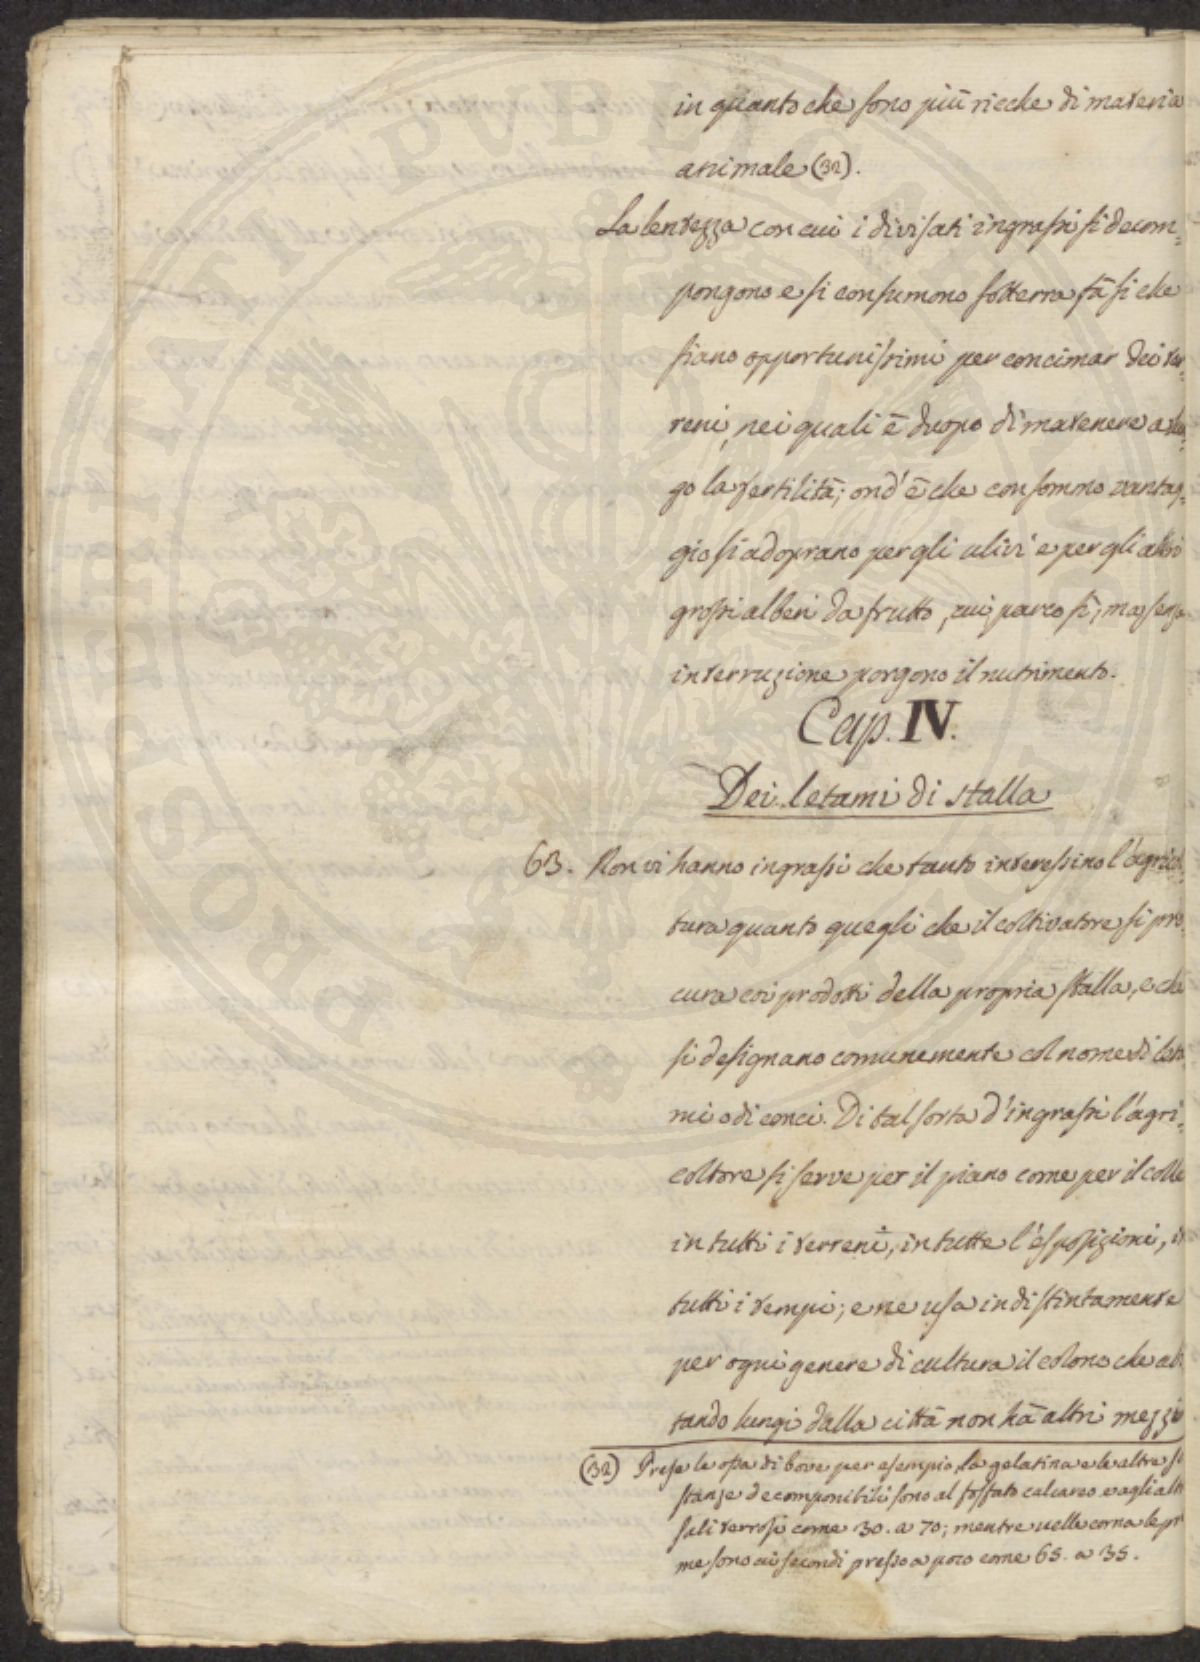 in quanto che sono più ricche di materia
animale (32).
La lentezza con cui i divisati ingrassi si decom=
pongono e si consumono sotterra fà si che
siano opportunissimi per concimar dei ter=
reni, nei quali è duopo di matenere a lun=
go la fertilità; ond'è che con sommo vantag=
gio si adoprano per gli ulivi e per gli altri
grossi alberi da frutto, cui parco sì, ma senza
interruzione porgono il nutrimento.
Cap. IV.
Dei letami di stalla
63. Non vi hanno ingrassi che tanto interessino l'agricol=
tura quanto quegli che il coltivatore si pro
cura coi prodotti della propria stalla, e che
si designano comunemente col nome di leta
mi o di conci. Di tal sorta d'ingrassi l'agri=
coltore si serve per il piano come per il colle
in tutti i terreni, in tutte l'esposizioni, in
tutti i tempi; e ne usa indistintamente
per ogni genere di cultura il colono che abi
tando lungi dalla città non hà altri mezzi
(32) Prese le ossa di bove per esempio, la gelatina e le altre so
stanze decomponibili sono al fosfato calcareo e agli altri
sali terrosi come 30. a 70; mentre nelle corna le pri
me sono ai secondi presso a poco come 65. a 35.
PROSPERITATI PUBLICAE